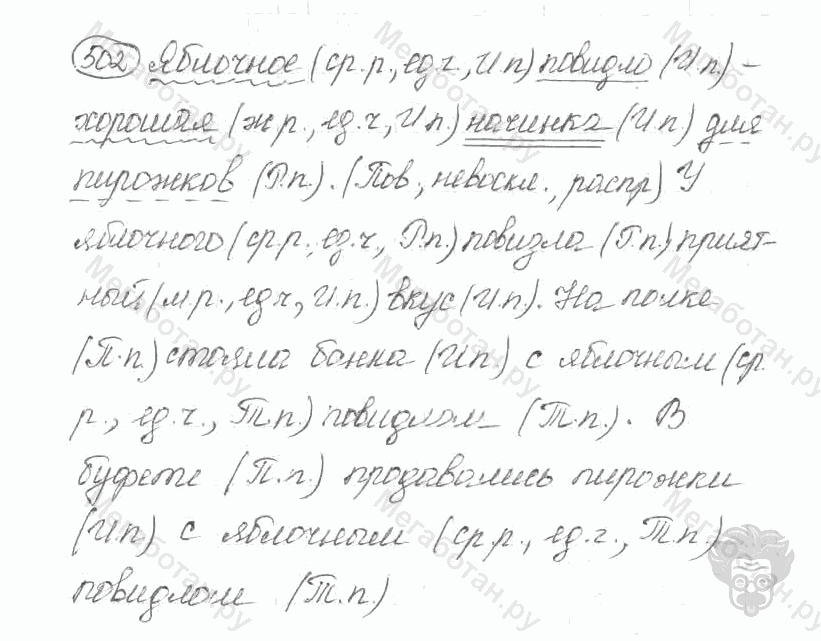 502 Яблочное (ср.р., ед.ч., И.п) повидло (И.п.) -
хорошая (ж.р., ед.ч, И.п.) начинка (И.п.) для
пирожков (Р.п.). (Пов., невоскл., распр) У
яблочного (ср.р., ед.ч., Р.п.) повидла (Р.п.) прият-
ный (м.р., ед.ч, И.п.) вкус (И.п.). На полке
(П.п.) стояла банка (И.п.) с яблочным (ср.
р., ед.ч., Т.п.) повидлом (Т.п.). В
буфете (П.п.) продавались пирожки
(И.п) с яблочным (ср.р., ед.ч., Т.п.)
повидлом (Т.п.)
Мегаботан.ру